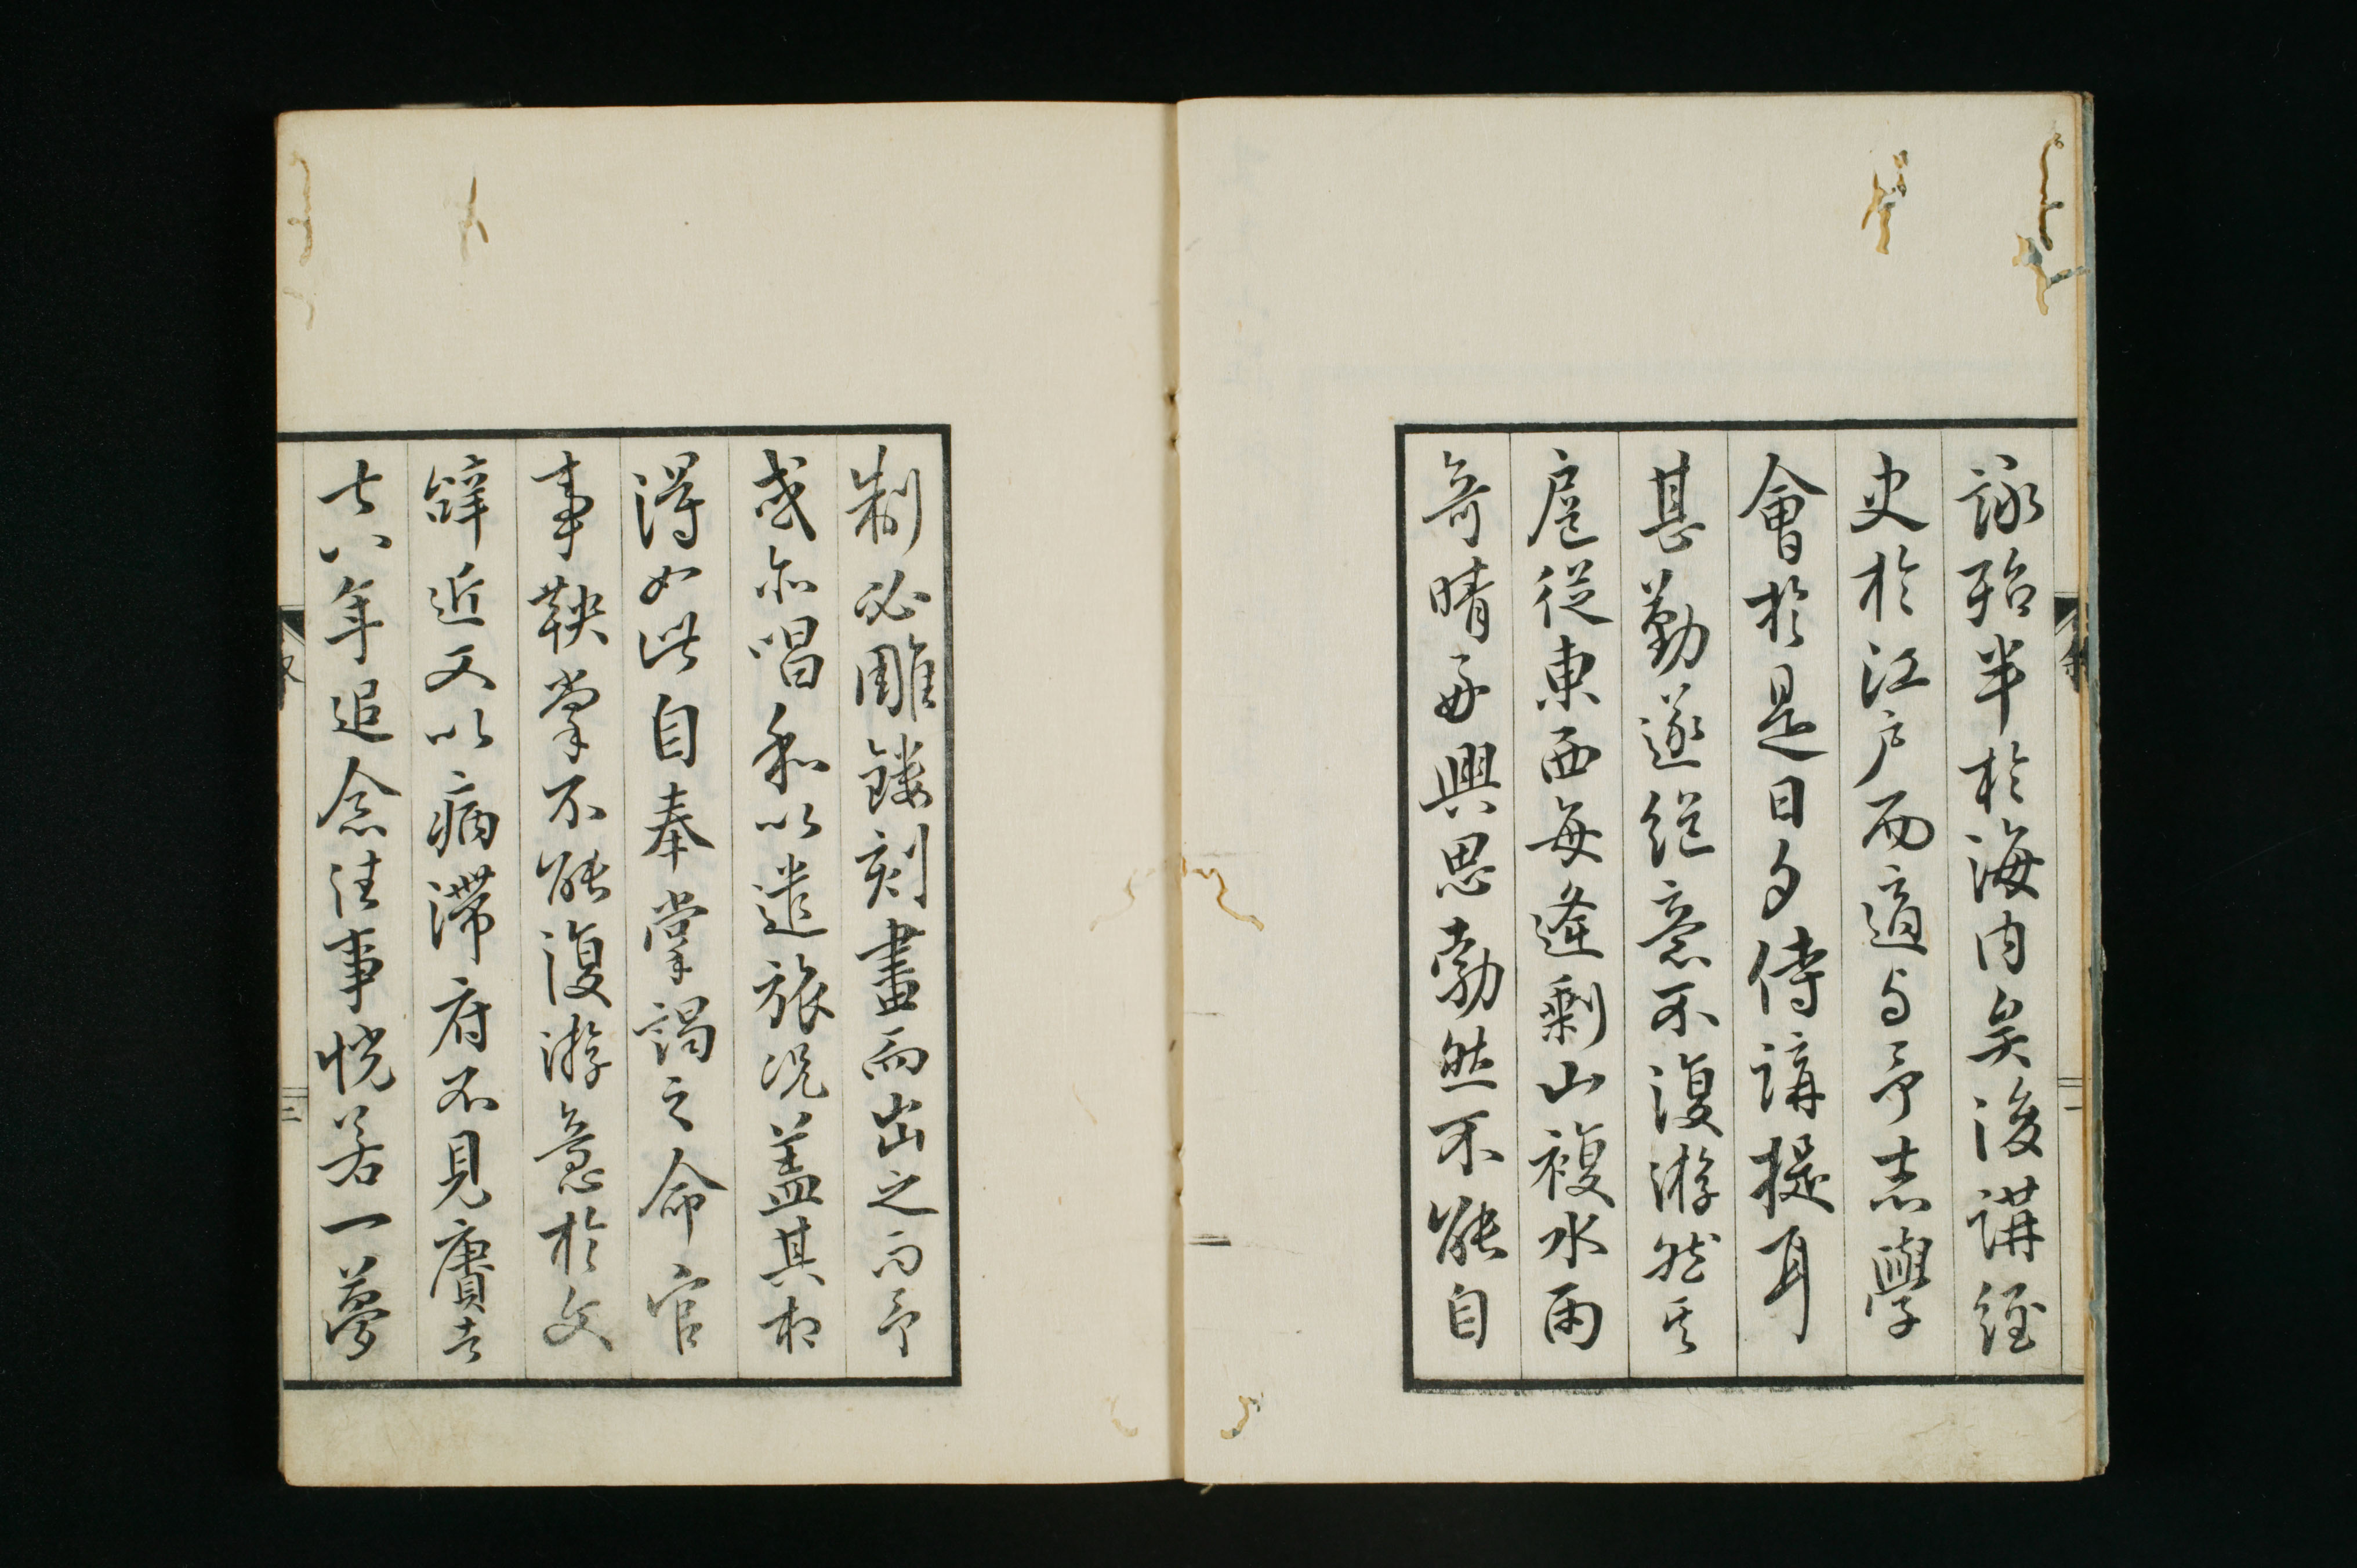 詠殆半於海内矣後講經
史於江戸而適与予志學
會於是日夕侍講提耳
甚勤遂絶意不復游然其
扈従東西每逢剩山複水雨
奇晴好興思勃然不能自
制必雕鏤刻畫而出之而予
或亦唱和以遣旅况蓋其相
得如此自奉掌謁之命官
事鞅掌不能復游意於文
辭近又以病滞府不見賡者
七八年追念往事恍若一夢